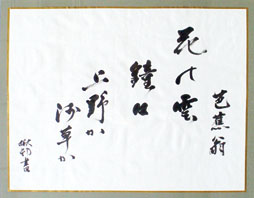 芭蕉翁
花の雲
鐘は
上野か
浅草か